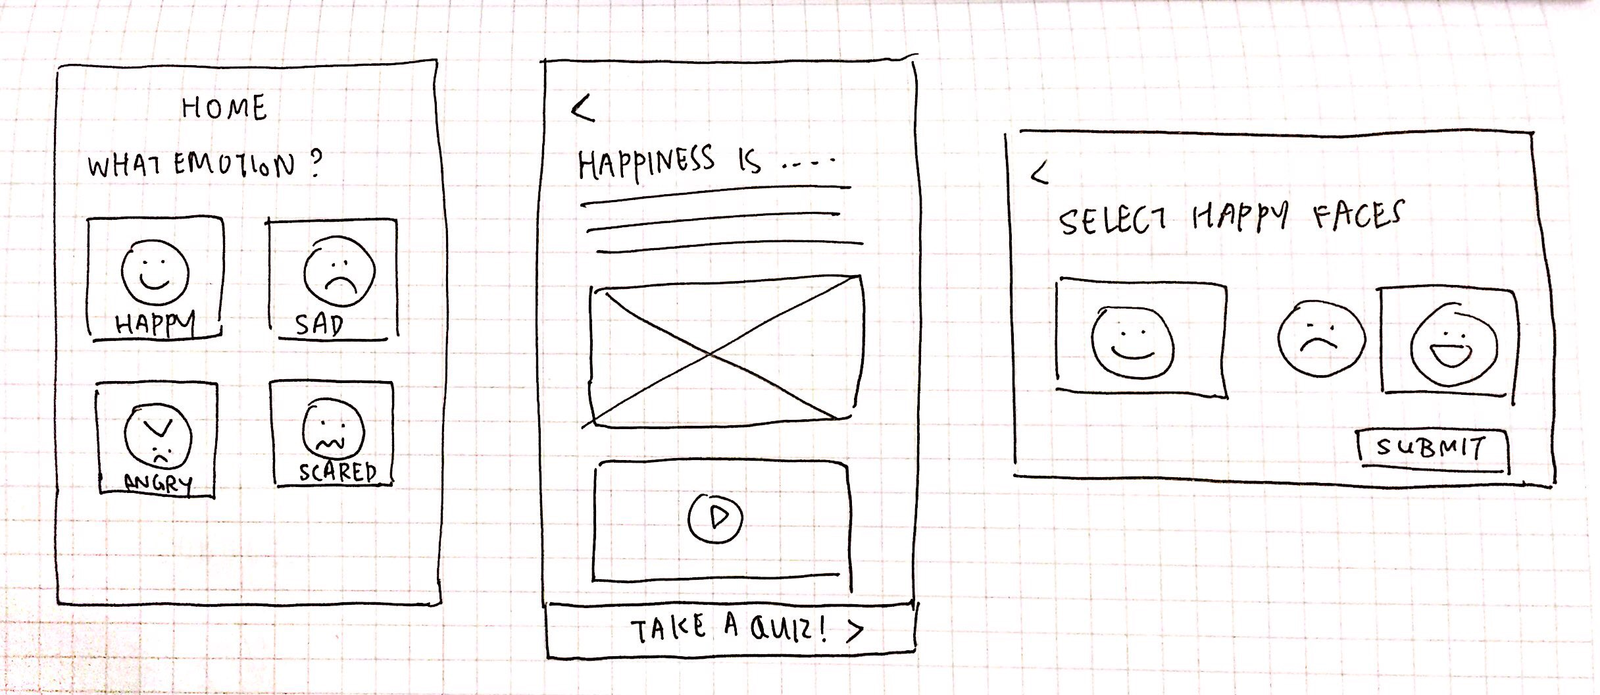 HOME
WHAT EMOTION?
HAPPY
SAD
ANGRY
SCARED
<
HAPPINESS IS ....
TAKE A QUIZ! >
<
SELECT HAPPY FACES
SUBMIT